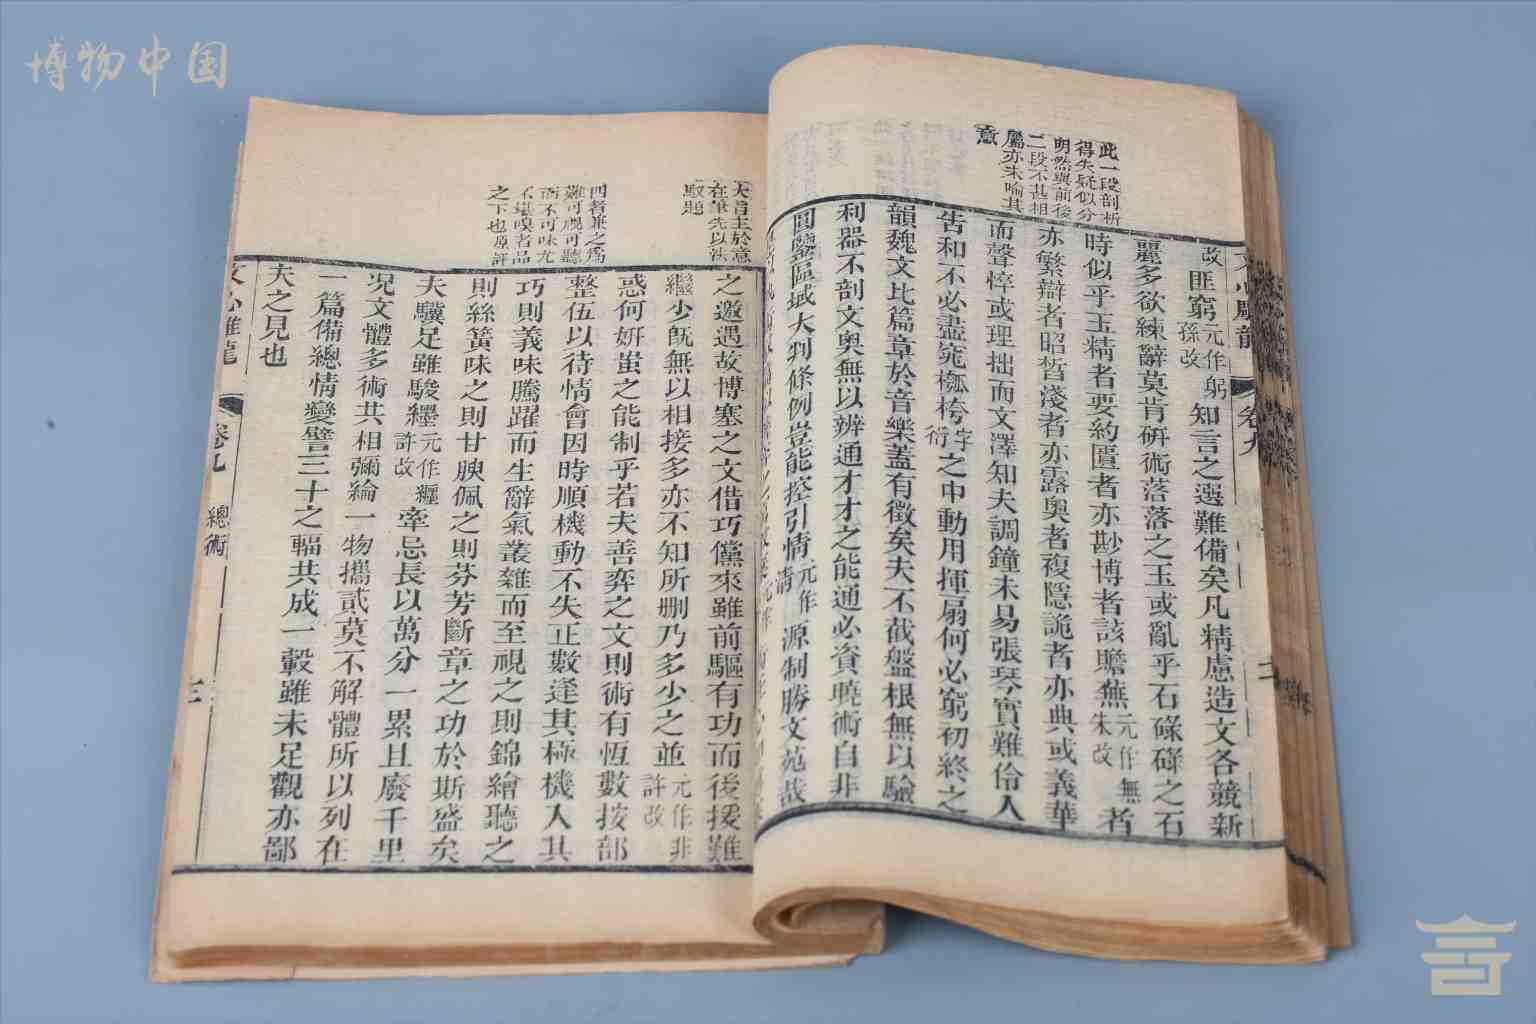 博物中国
此一段剖析
得失疑似分
明然與前後
二段不甚相
屬亦未喻其
意
改匪窮元作躬孫改知言之選難備矣凡精慮造文各競新
麗多欲練辭莫肯研術落落之玉或亂乎石碌碌之石
時似乎玉精者要約匱者亦尠博者該贍蕪元作無朱改者
亦繁辯者昭晳淺者亦露奧者複隱詭者亦典或義華
而聲悴或理拙而文澤知夫調鐘未易張琴實難伶人
告和不必盡窕槬桍字衍之中動用揮扇何必窮初終之
韻魏文比篇章於音樂蓋有徵矣夫不截盤根無以驗
利器不剖文奧無以辨通才才之能通必資曉術自非
圓鑒區域大判條例豈能控引情元作清源制勝文苑哉
卷九
二
大旨主於意
在筆先以法
馭題
四者兼之爲
難可視可聽
而不可味尤
不堪嗅者品
之下也原評
之邀遇故博塞之文借巧儻來雖前驅有功而後援難
繼少旣無以相接多亦不知所刪乃多少之並元作非許改
惑何妍蚩之能制乎若夫善弈之文則術有恆數按部
整伍以待情會因時順機動不失正數逢其極機入其
巧則義味騰躍而生辭氣叢雜而至視之則錦繪聽之
則絲簧味之則甘腴佩之則芬芳斷章之功於斯盛矣
夫驥足雖駿纆元作纏許改牽忌長以萬分一累且廢千里
況文體多術共相彌綸一物攜貳莫不解體所以列在
一篇備總情變譬三十之輻共成一轂雖未足觀亦鄙
夫之見也
文心雕龍
卷九
總術
三